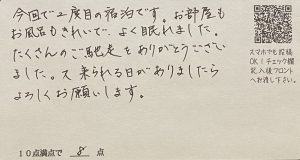 今回で2度目の宿泊です。お部屋も
お風呂もきれいで、よく眠れました。
たくさんのご馳走をありがとうござい
ました。又来られる日がありましたら
よろしくお願いします。
スマホでも投稿
OK!チェック欄
記入後フロント
へお渡し下さい。
10点満点で 8 点